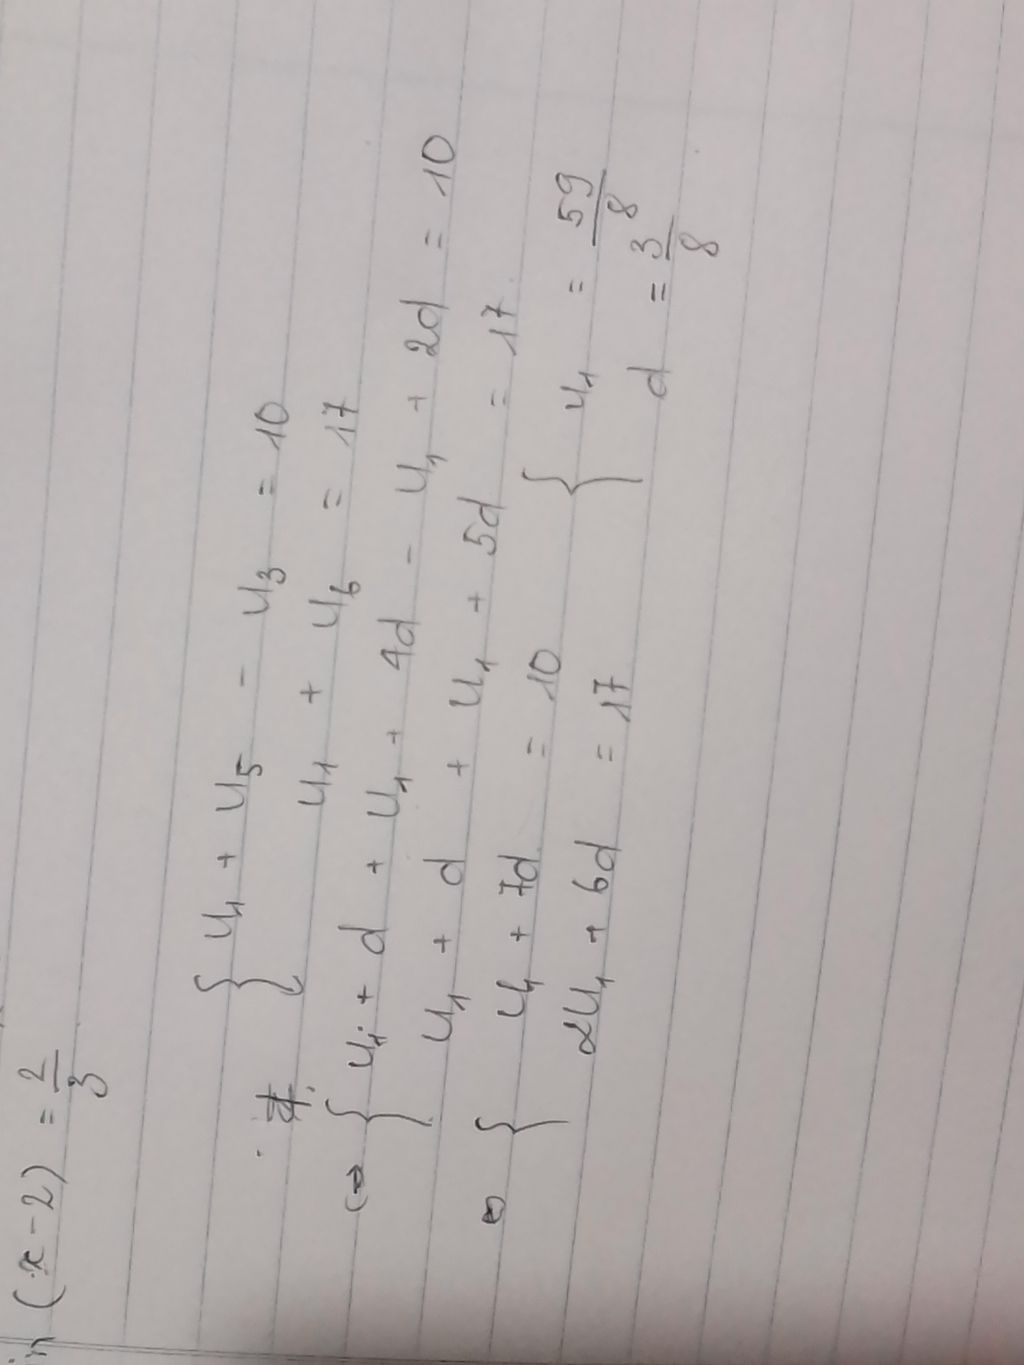 (x - 2) = 2/3
{ u₁ + u₅ - u₃ = 10
u₁ + u₆ = 17
⇔ { u₁ + d + u₁ + 4d - u₁ + 2d = 10
u₁ + d + u₁ + 5d = 17
⇔ { u₁ + 7d = 10
2u₁ + 6d = 17
{ u₁ = 59/8
d = 3/8